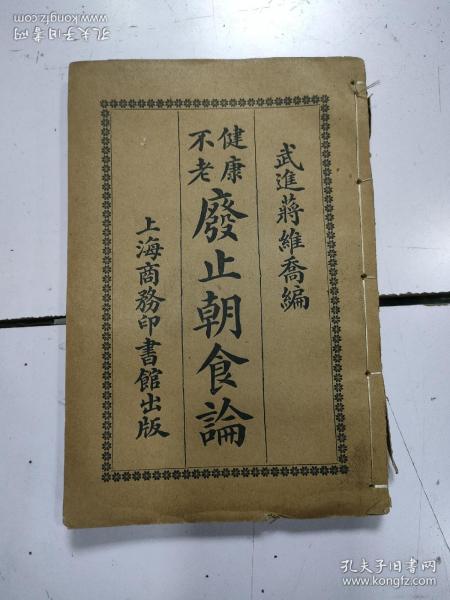 武進蔣維喬編
健康
不老
廢止朝食論
上海商務印書館出版
孔夫子旧书网
www.kongfz.com
孔夫子旧书网
www.kongfz.com